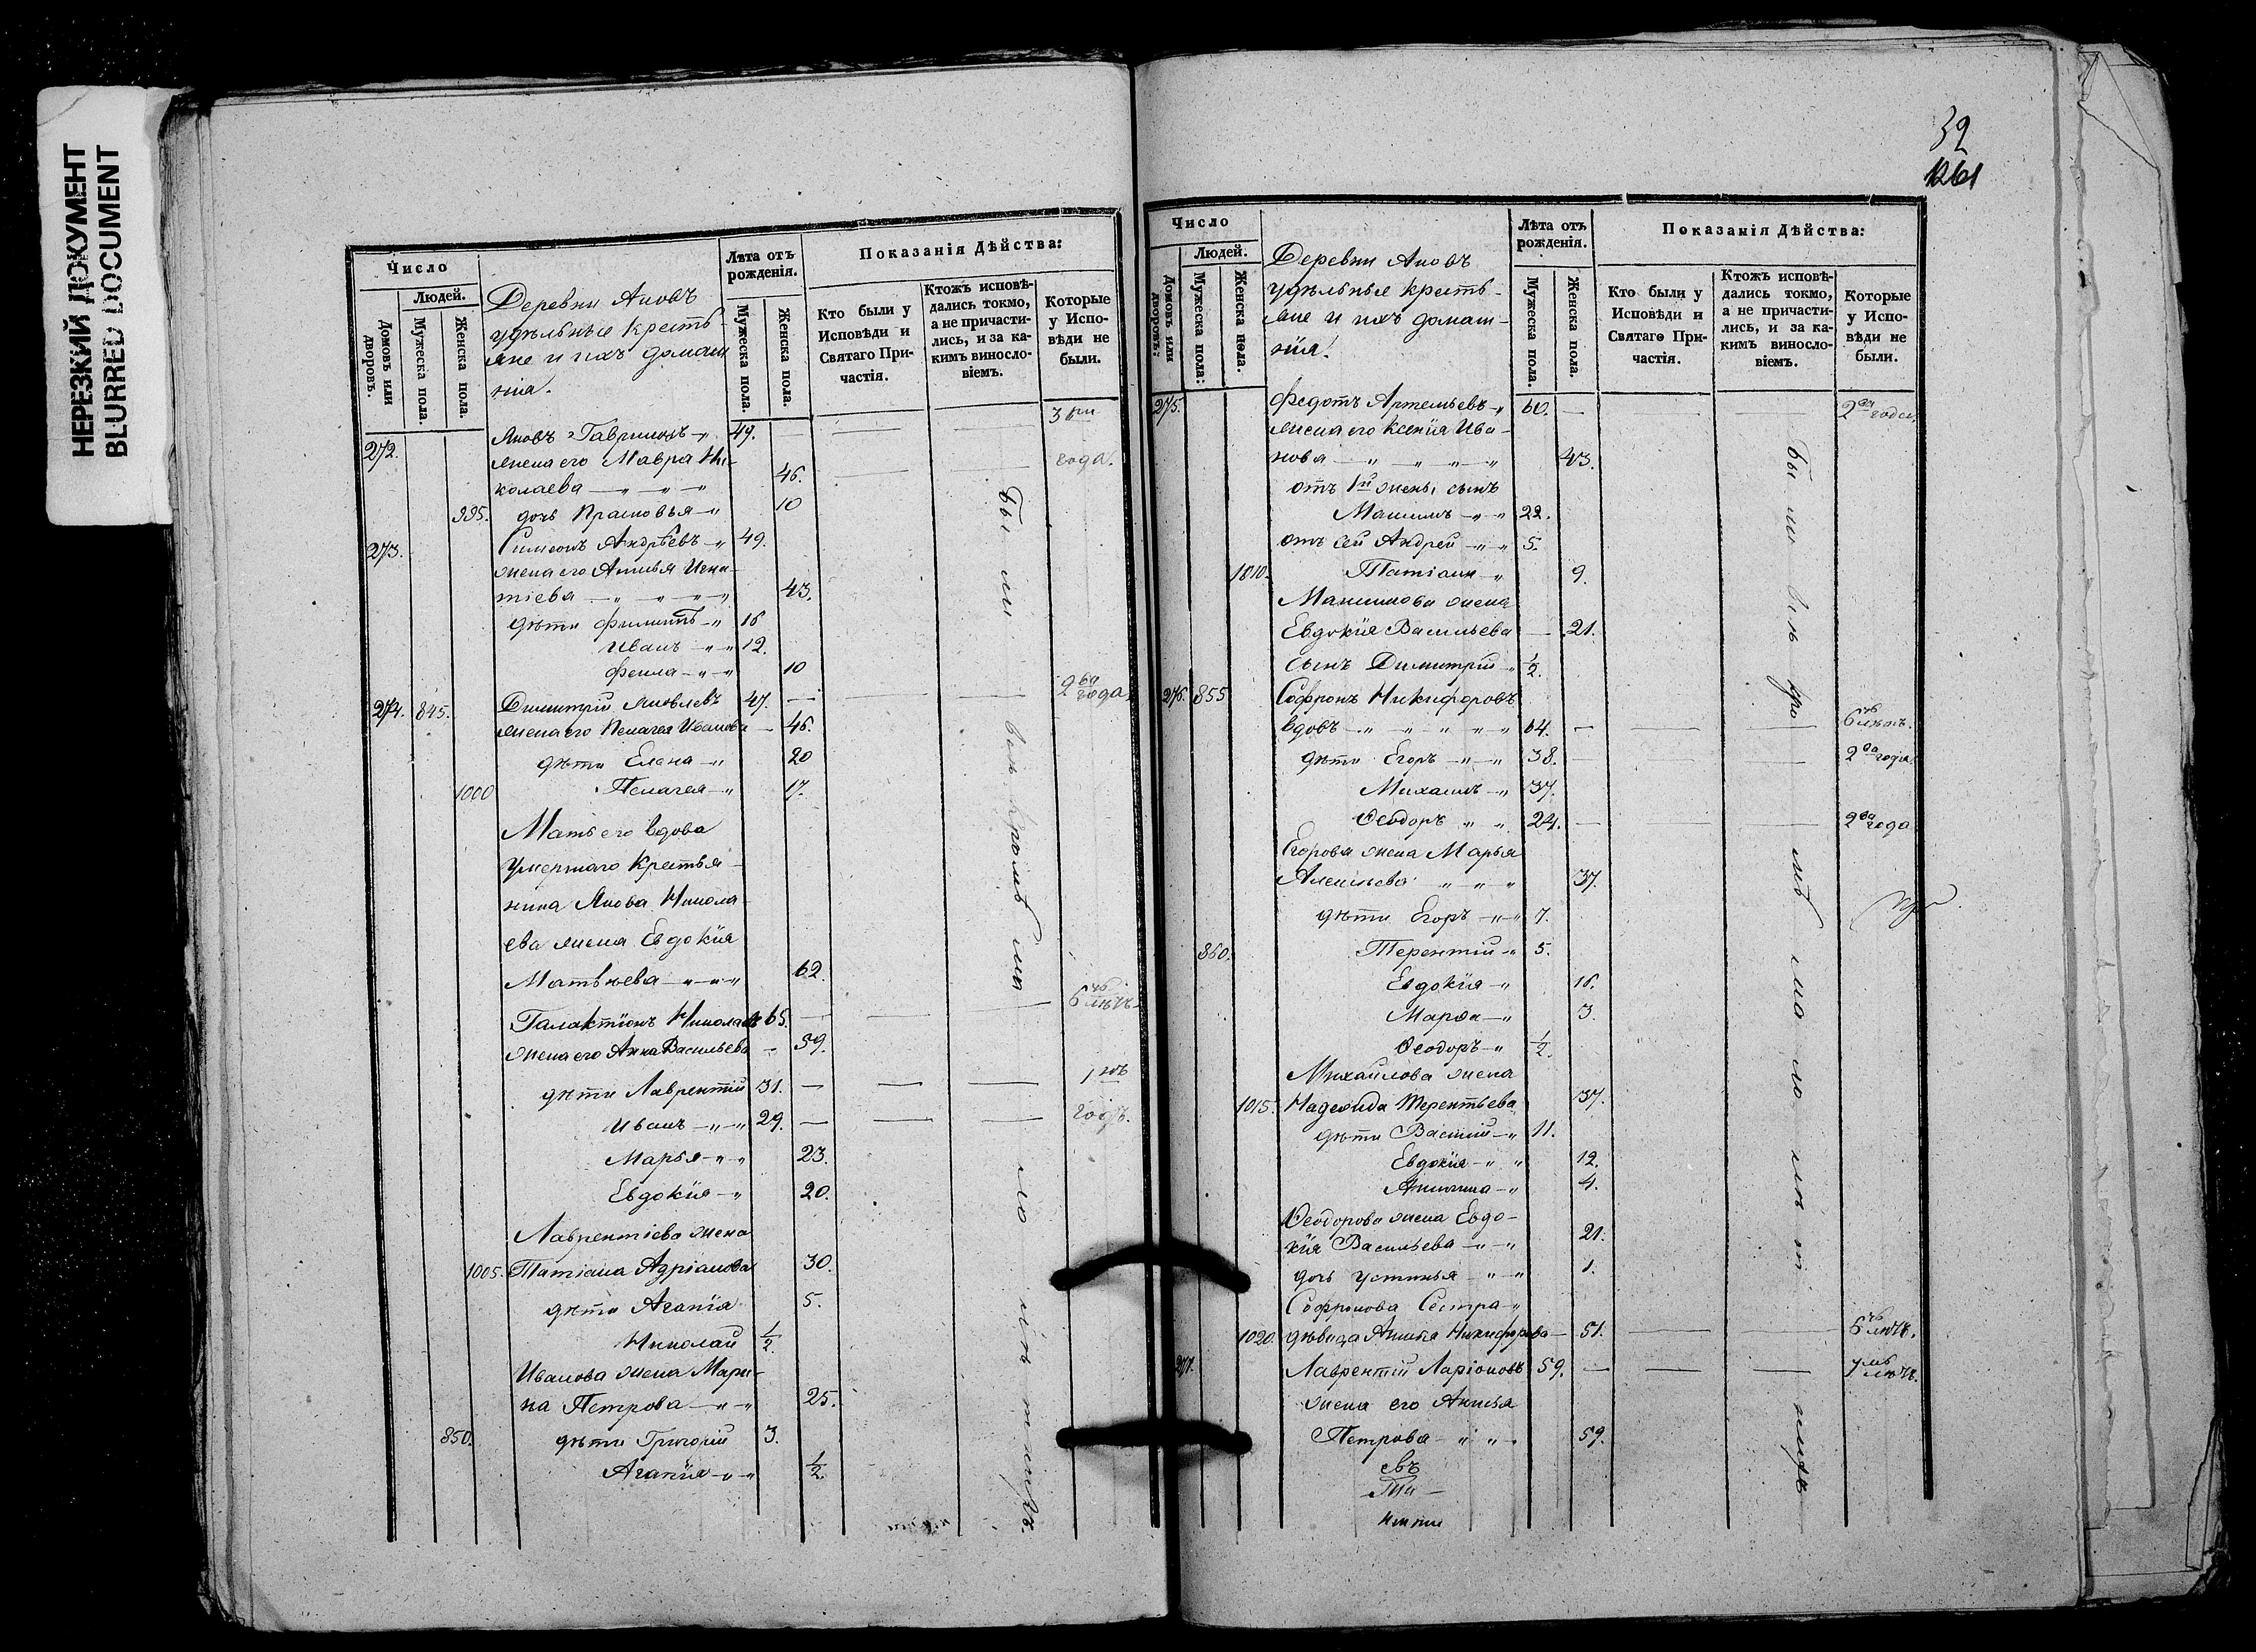 НЕРЕЗКИЙ ДОКУМЕНТ
BLURRED DOCUMENT
Число
Людей.
Домовъ или дворовъ.
Мужеска пола.
Женска пола.
Деревни
удѣльные кресть-
яне и ихъ домаш
нія.
Лѣта отъ рожденія.
Мужеска пола.
Женска пола.
Показанія Дѣйства:
Кто были у Исповѣди и Святаго Причастія.
Ктожъ исповѣдались токмо, а не причастились, и за какимъ винословіемъ.
Которые у Исповѣди не были.
272. Яковъ Гавриловъ 49. 3 ри
жена его Мавра Ни- года.
колаева 46.
995. дочь Прасковья 10
273. Симеонъ Андрѣевъ 49.
жена его Игна-
тіева 43.
дѣти Филиппъ 16
Иванъ 12.
Фекла 10
274. 845. Димитрій Яковлевъ 47. 2 ва года
жена его Пелагея Иванова 46.
дѣти Елена 20
1000 Пелагея 17.
Мать его вдова
умершаго крестья-
нина Якова Никола
ева жена Евдокія
Матвѣева 62.
Галактіонъ Николаевъ 65. 6 ть лѣтъ
жена его Анна Васильева 59.
дѣти Лаврентій 31. 1 нъ
Иванъ 29. годъ.
Марья 23.
Евдокія 20.
Лаврентіева жена
1005. Татіана Адріанова 30.
дѣти Агапія 5.
Николай 1/2.
Иванова жена Мари-
на Петрова 25.
850. дѣти Григорій 3.
Агапія 1/2.
Были
32
1261
Число
Людей.
Домовъ или дворовъ:
Мужеска пола:
Женска пола.
Деревни
удѣльные кресть-
яне и ихъ домаш-
нія.
Лѣта отъ рожденія.
Мужеска пола.
Женска пола.
Показанія Дѣйства:
Кто были у Исповѣди и Святаго Причастія.
Ктожъ исповѣдались токмо, а не причастились, и за какимъ винословіемъ.
Которые у Исповѣди не были.
275. Федотъ Артемьевъ 60. 2 ва года
жена его Ксенія Ива-
нова 43.
отъ 1й жены сынъ
Максимъ 22.
отъ сей Андрей 5.
1010. Татіана 9.
Максимова жена
Евдокія Васильева 21.
сынъ Димитрій 1/2.
276. 855 Софронъ Никифоровъ
вдовъ 64. 6 ть лѣтъ.
дѣти Егоръ 38. 2 ва года
Михаилъ 37.
Ѳеодоръ 24. 2 ва года
Егорова жена Марья
Алексѣева 37.
дѣти Егоръ 7.
860. Терентій 5.
Евдокія 16.
Марѳа 3.
Ѳеодоръ 1/2.
Михайлова жена
1015. Надежда Терентьева 37.
дѣти Василій 11.
Евдокія 12.
4.
Ѳеодорова жена Евдо-
кія Васильева 21.
дочь Устинья 1.
Софронова Сестра
1020. дѣвица Никифорова 51. 6 ть лѣтъ.
277. Лаврентій Ларіоновъ 59. 7 мь лѣтъ.
жена его Анисья
Петрова 59.
Были